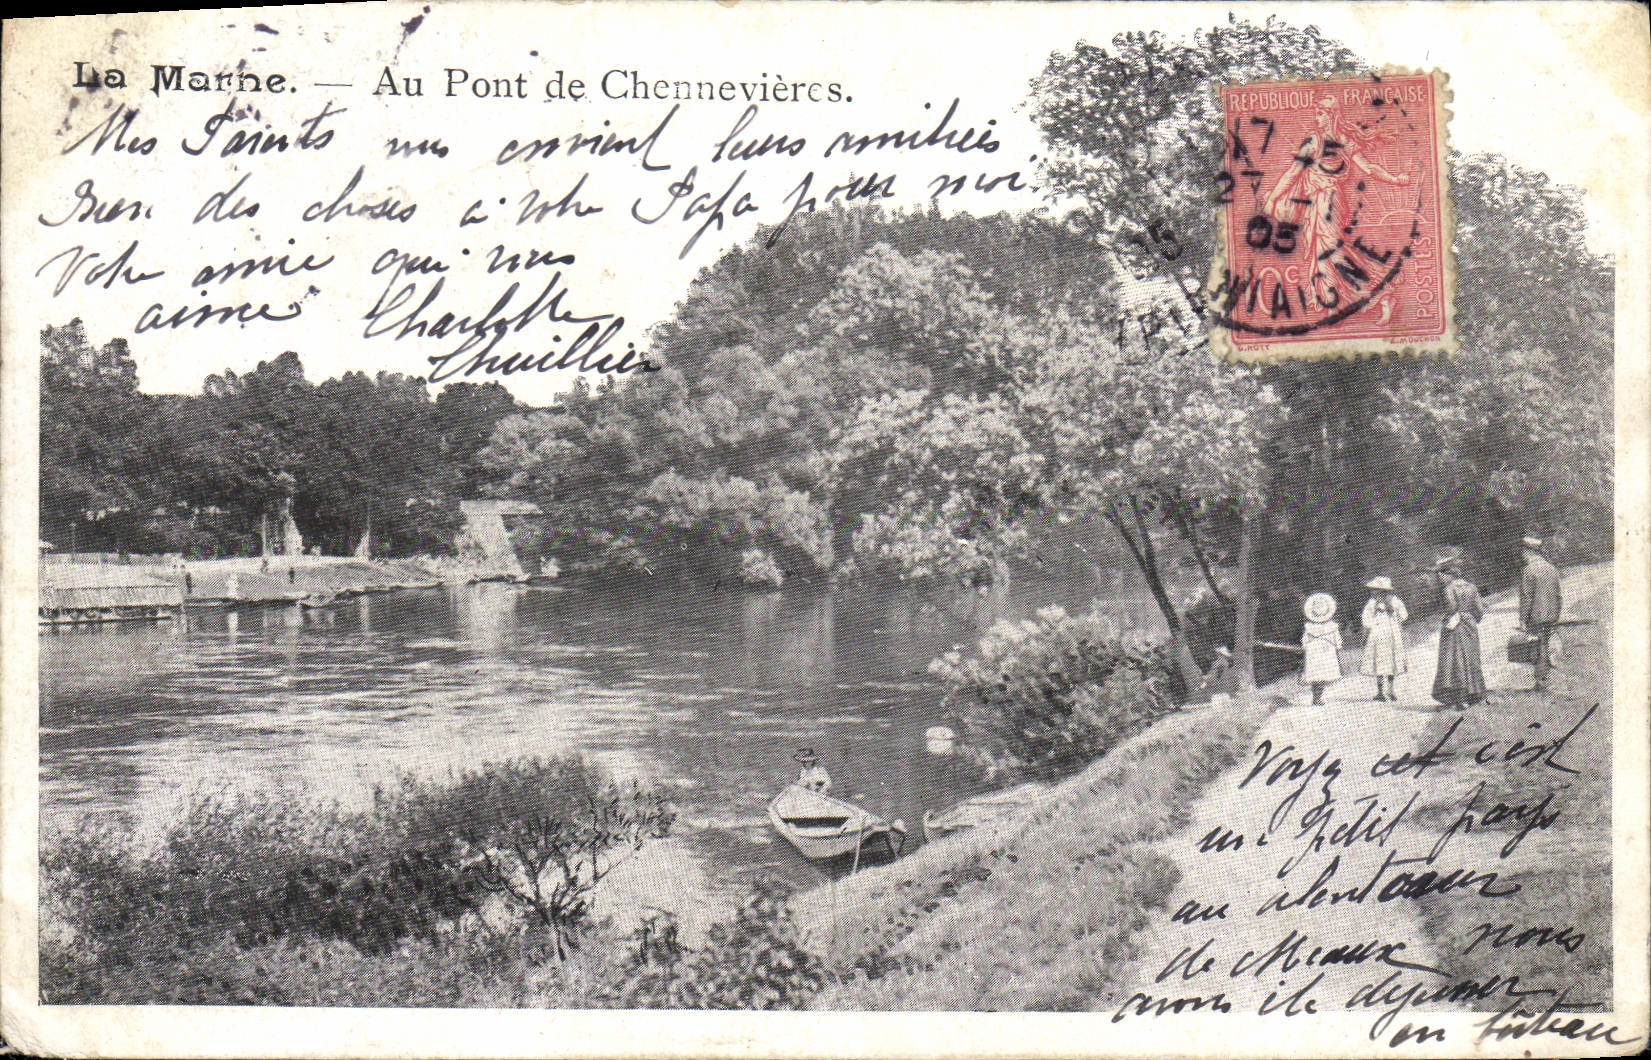 La Marne. — Au Pont de Chennevières.
Mes Parents vous envient leurs amitiés
Bien des choses à votre Papa pour moi.
Votre amie qui vous
aime Charlotte
Thuillier
RÉPUBLIQUE FRANÇAISE
27
05
10c
POSTES
O. ROTY
E. MOUCHON
Voyez cet c'est
un petit pays
au alentour
de Meaux nous
avons été dejeuner
en bateau